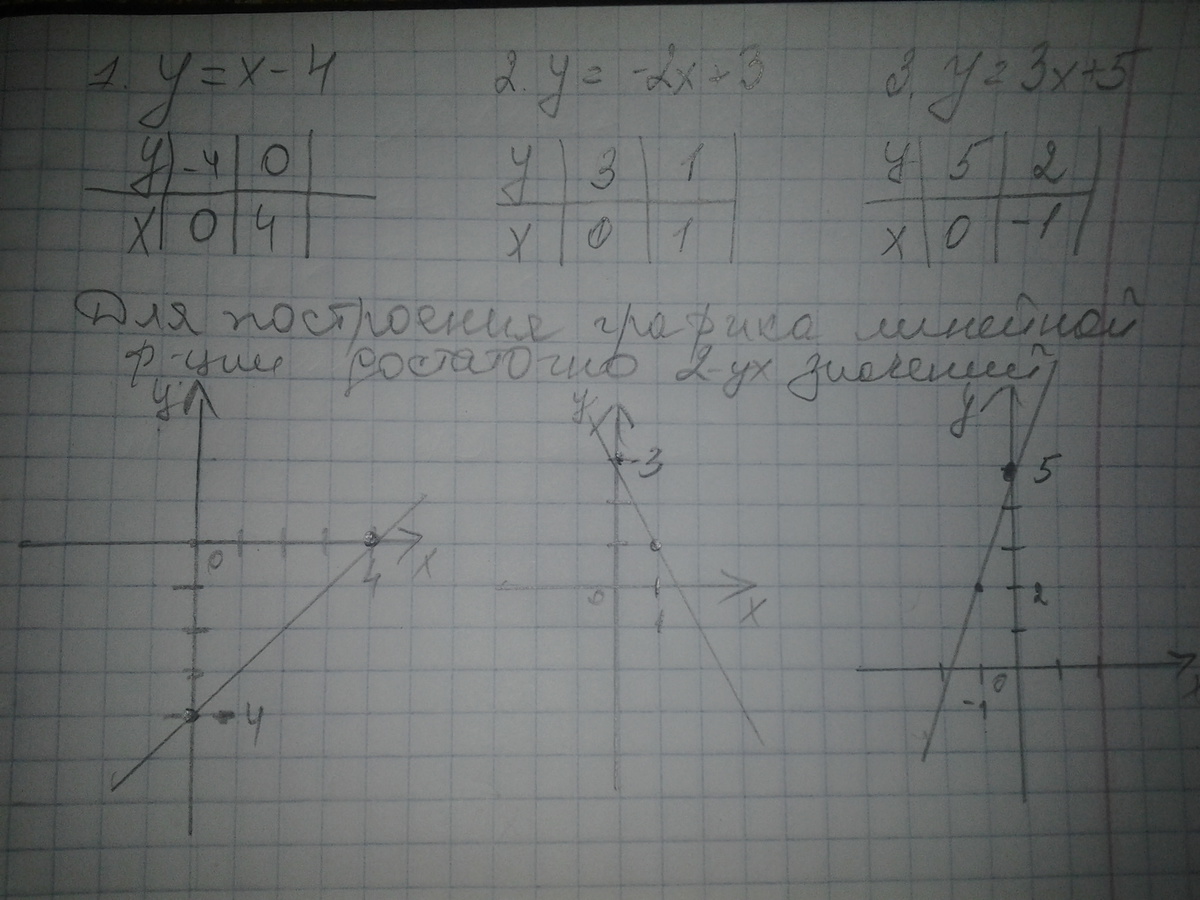 1. y = x - 4
2. y = -2x + 3
3. y = 3x + 5
y | -4 | 0
x | 0 | 4
y | 3 | 1
x | 0 | 1
y | 5 | 2
x | 0 | -1
Для построения графика линейной
ф-ции достаточно 2-ух значений
y
0
4
x
-4
y
3
0
1
x
y
5
2
-1
0